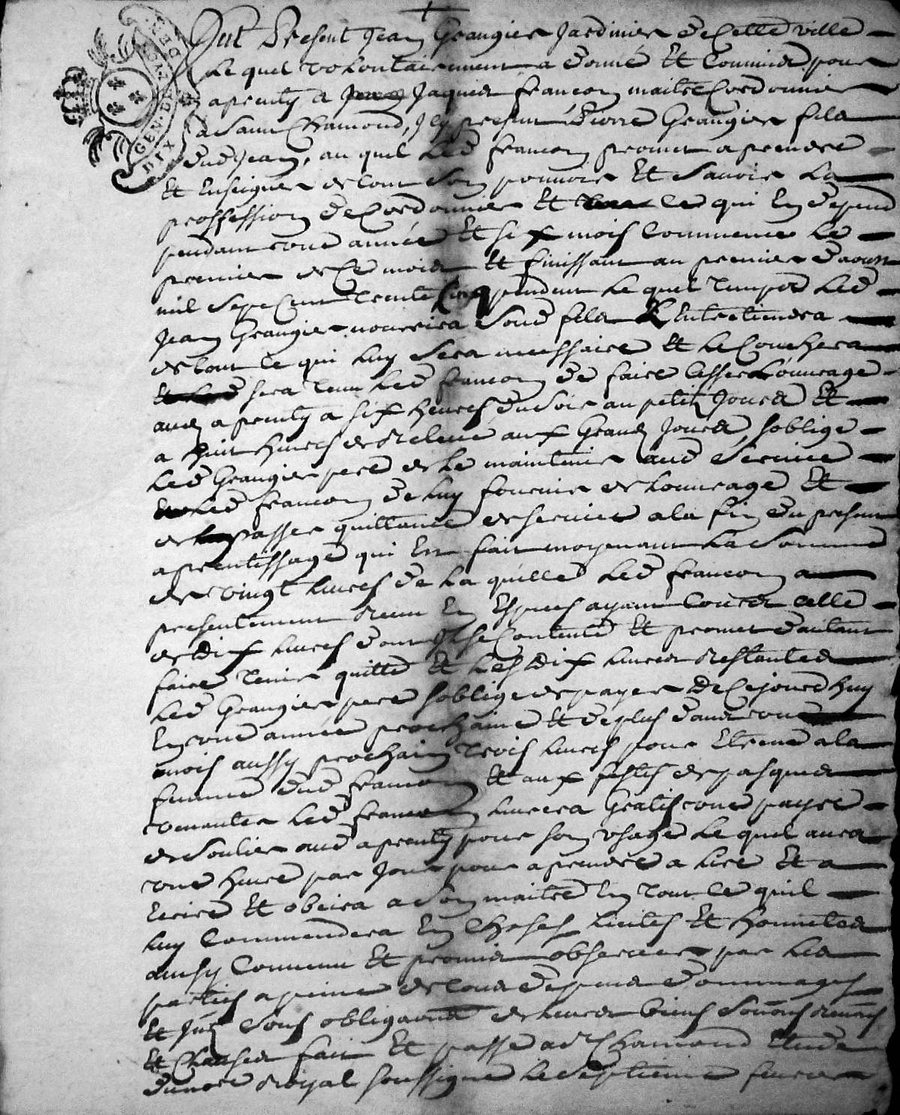 GEN. D LYON
DIX DEN
fut Present Jean Grangier Jardinier de cette ville
Lequel volontairement a donné Et Commis pour
aprenty a Jaques francon maitre Cordonnier
a Saint Chamond, Icy present Pierre Grangier fils
dud Jean, au quel led francon promet aprendre
Et Enseigner de tout son pouvoir Et Savoir La
proffession de Cordonnier Et ce qui En depend
pendant une année Et six mois Commencé Le
premier de ce mois Et finissant au premier daoust
mil sept Cent trente Cinq pendant le quel temps led
Jean Grangier nourrira Sond fils & Lentretiendra
de tout ce qui luy Sera necessaire Et Le Couchera
sera tenu led francon de faire Cesser Louvrage
aud aprenty a six heures du soir au petits Jours Et
a huit heures de Releve aux Grands Jours soblige
Led Grangier pere de Le maintenir aud Service
Led francon de luy fournir de Louvrage Et
de passer quittance de service a la fin du present
aprentissage qui Est fait moyenant La Somme
de vingt livres de la quelle Led francon a
presentement Receu En Especes ayant Cours Celle
de Dix livres dont Il se Contente Et promet dautant
faire tenir quitte Et les Dix livres Restantes
Led Grangier pere soblige de payer De Cejourdhuy
En une année prochaine Et de plus dans
mois aussy prochain trois livres pour Etrene a la
femme dud francon Et aux festes de pasques
venantes Led francon livrera Gratis une payre
de Soulier aud aprenty pour son usage Le quel aura
une heure par Jour pour aprendre a lire Et a
Ecrire Et obeira a Son maitre En tout ce quil
luy Commendera En Choses licites Et honnetes
ainsy Convenu Et promis observer par Les
parties a peine de tous depens dommages
Et Jnt Sous obligation de leurs biens Soumons Renons
Et Clauses fait Et passé a St Chamond Etude
du notre Royal soussigné Le Septieme fevrier